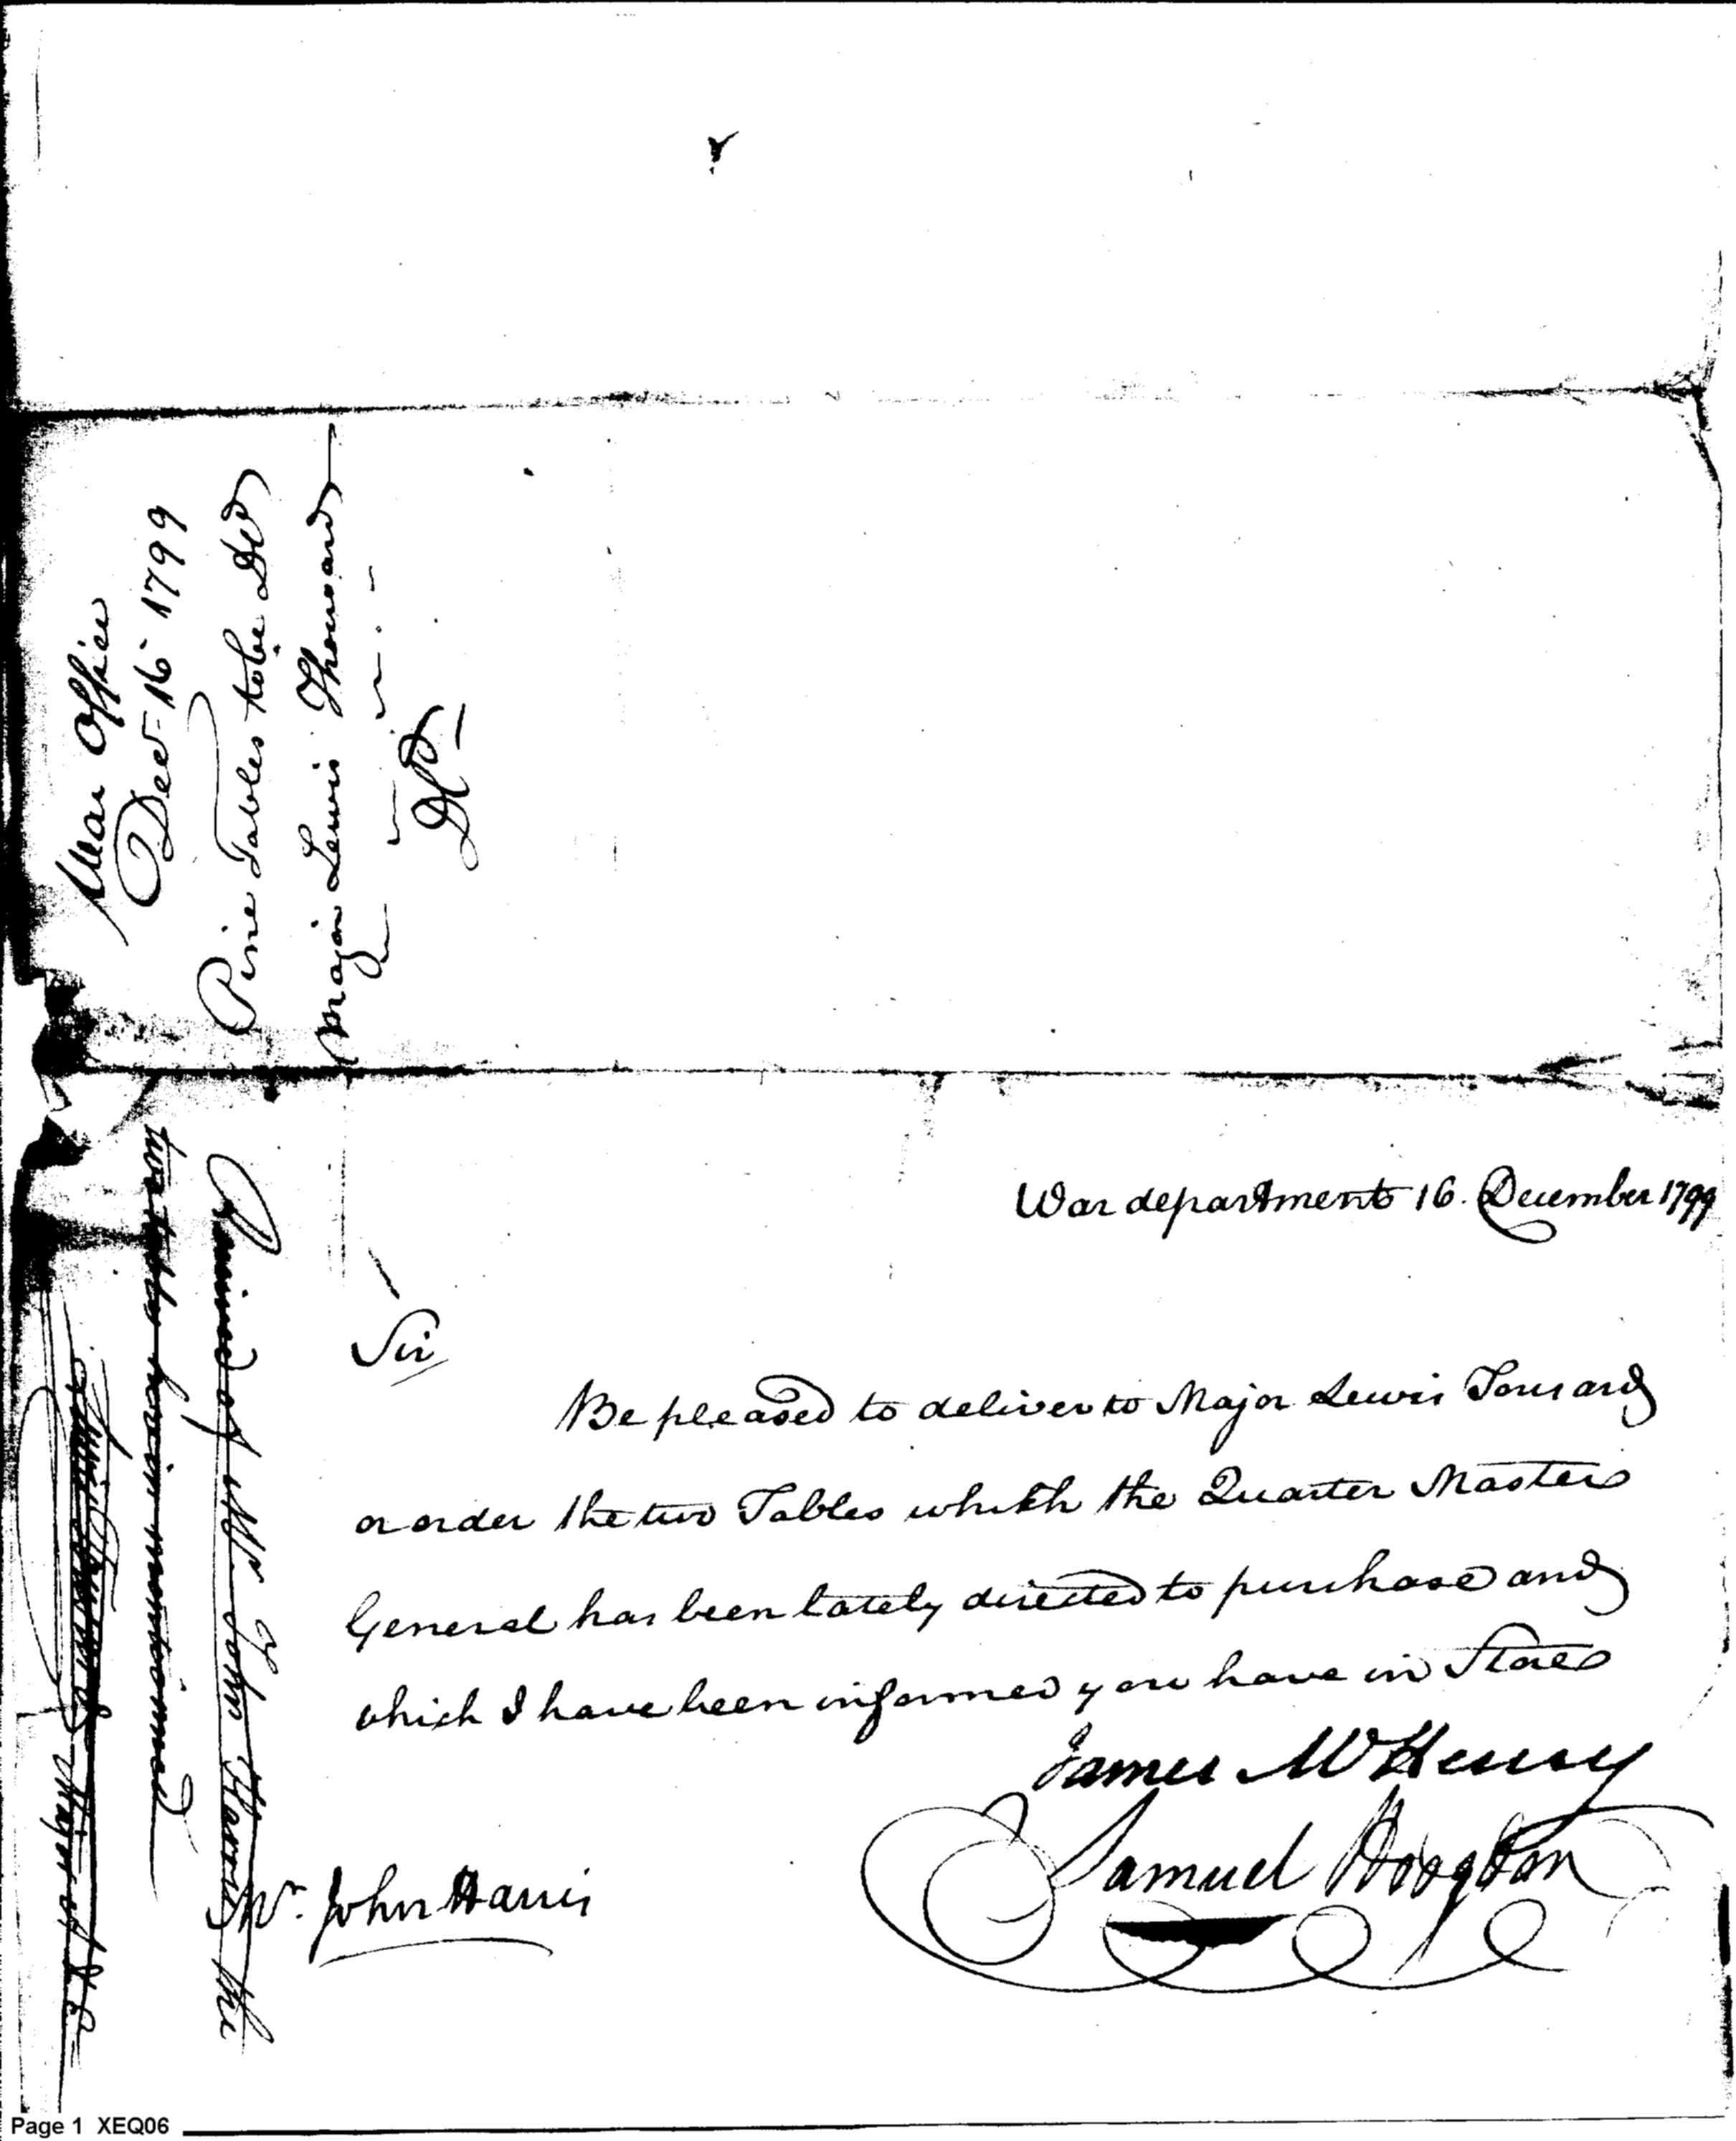 War Office
Decr 16 1799
Pine Tables to be Dd
Major Lewis Thousard
Dd
War department 16. December 1799
Sir
Be pleased to deliver to Major Lewis Tousard
or order the two Tables which the Quarter Master
General has been lately directed to purchase and
which I have been informed you have in Store
James McHenry
Samuel Hodgdon
Mr. John Harris
Received of Mr. John Harris the